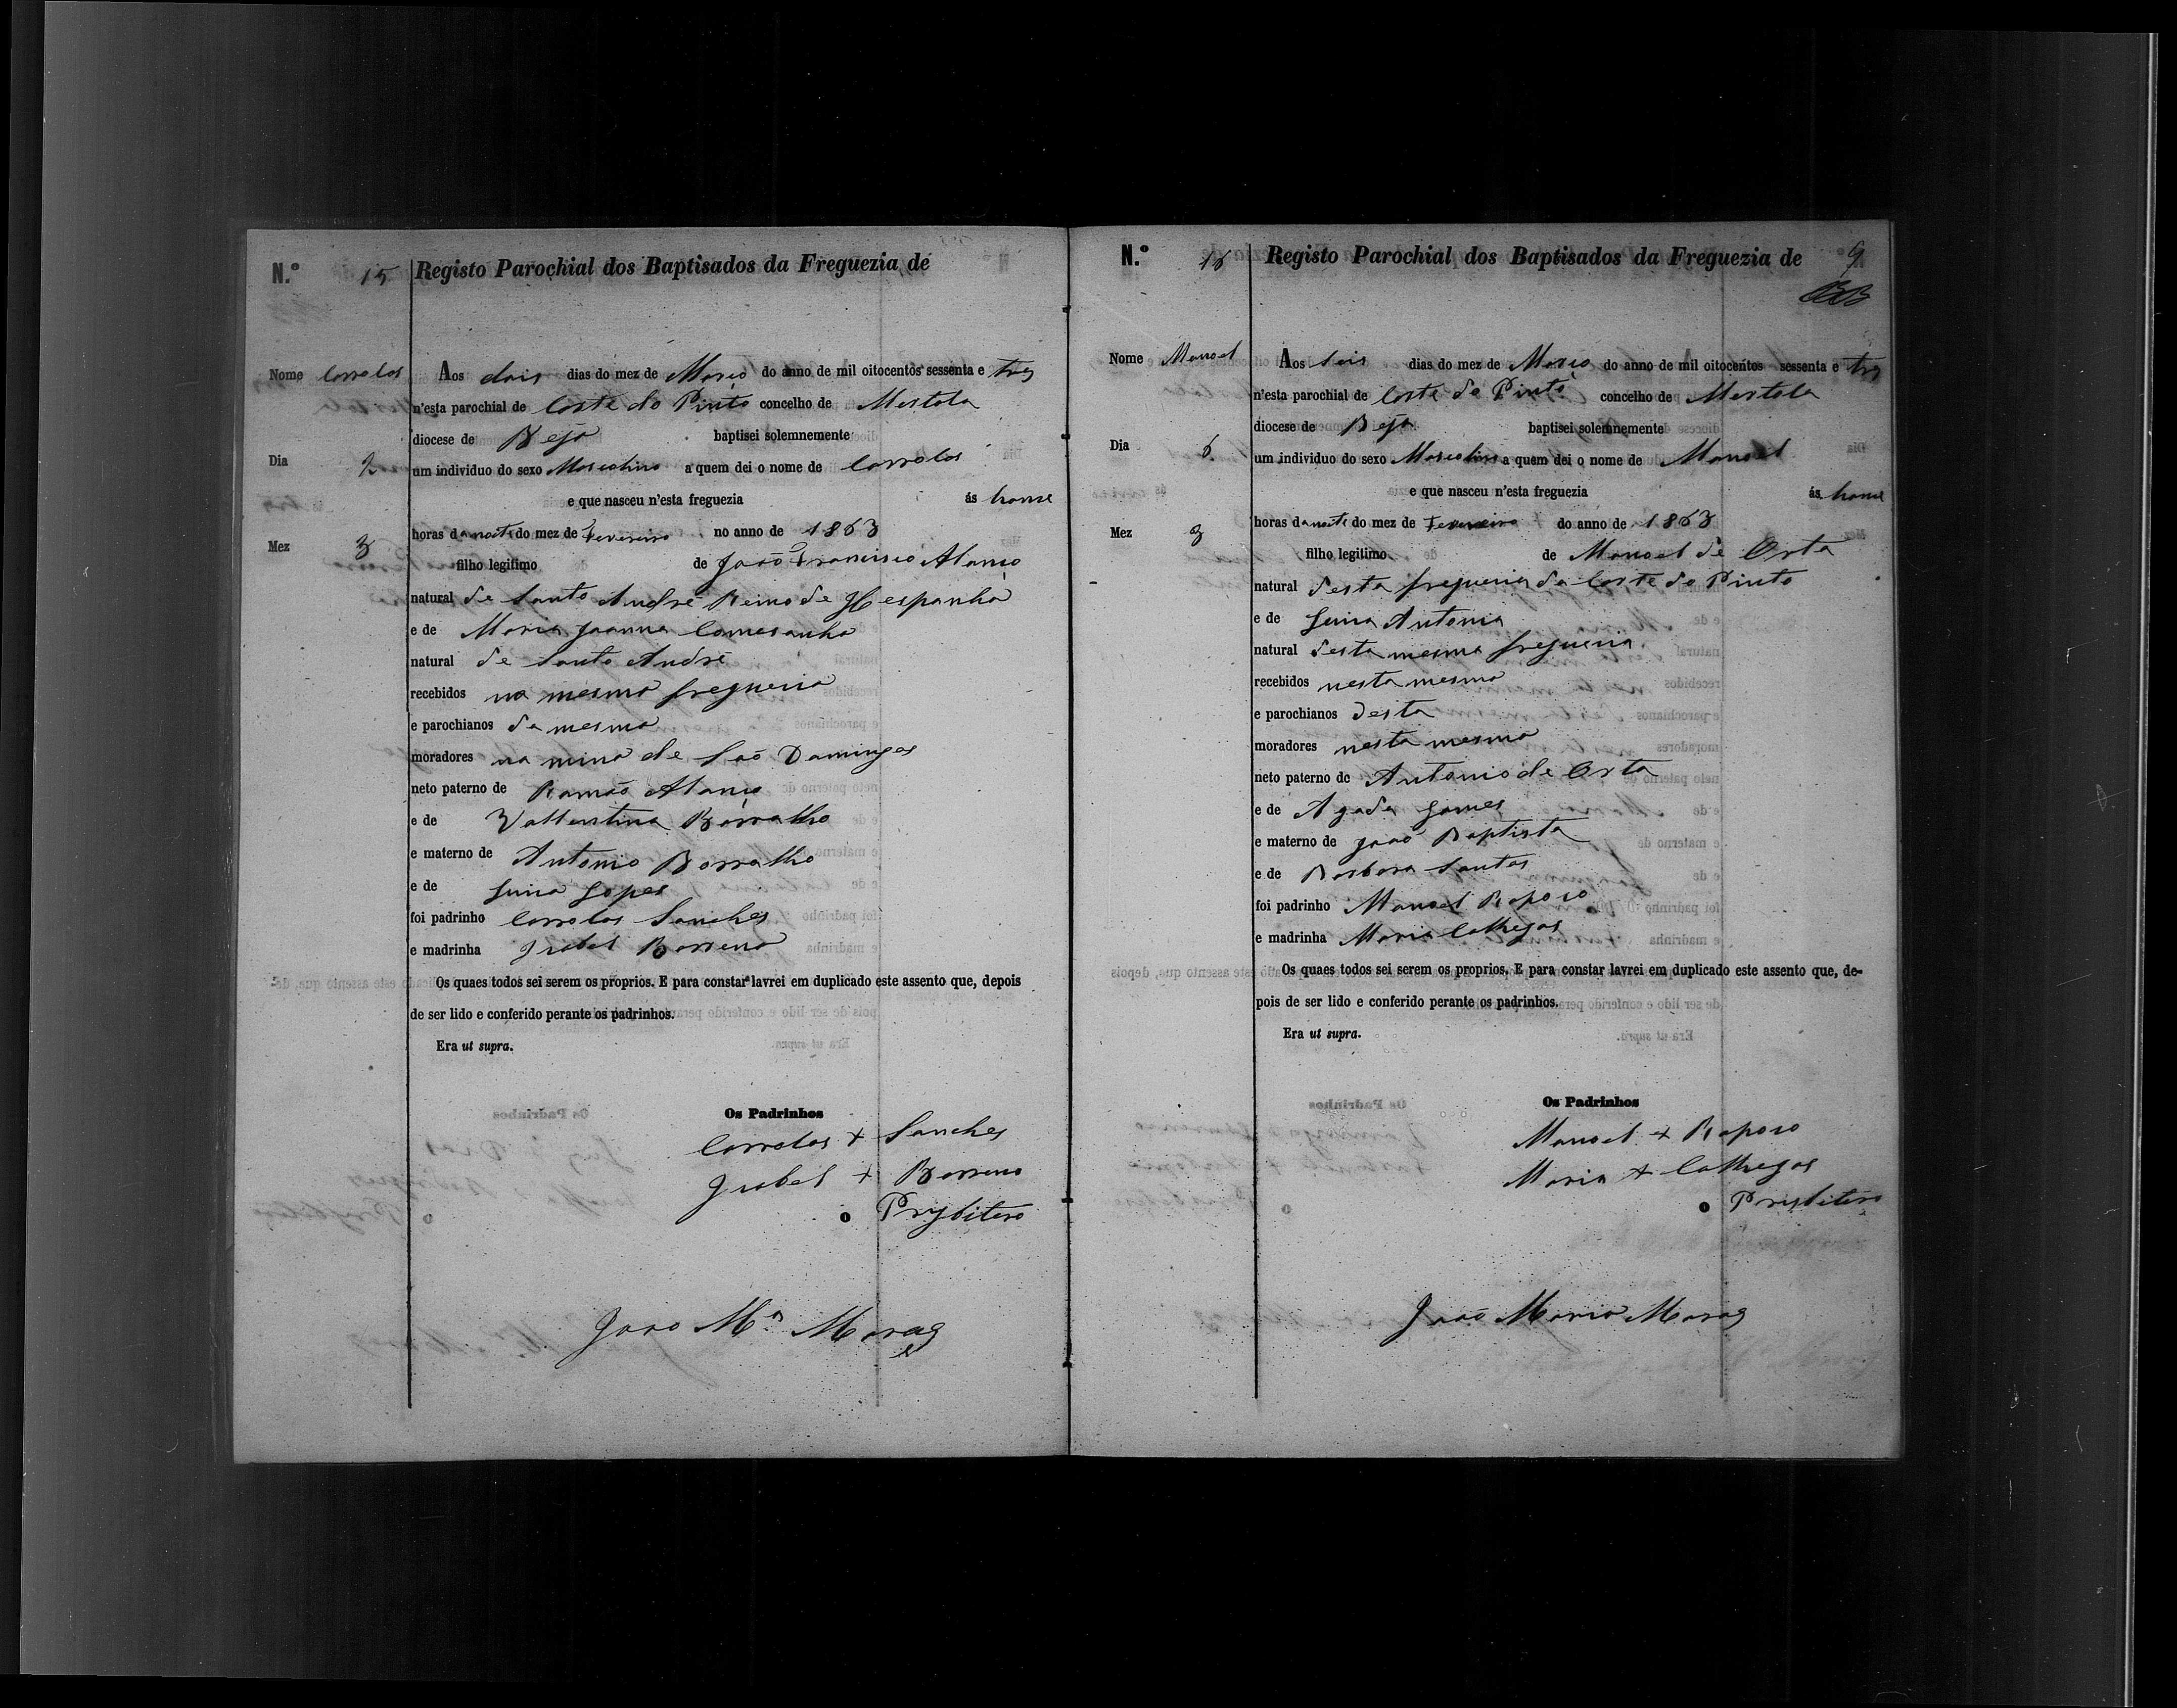 N.º 15 Registo Parochial dos Baptisados da Freguezia de
Nome Carrolos Aos dois dias do mez de Março do anno de mil oitocentos sessenta e tres
n'esta parochial de Corte do Pinto concelho de Mertola
diocese de Beja baptisei solemnemente
Dia 2 um individuo do sexo Mascolino a quem dei o nome de Carrolos
e que nasceu n'esta freguezia ás honse
Mez 3 horas da noite do mez de Fevereiro no anno de 1863
filho legitimo de João Francisco Afonço
natural de Santo André Reino de Hespanha
e de Maria Joanna
natural de Santo André
recebidos na mesma fregueria
e parochianos da mesma
moradores na mina de São Domingos
neto paterno de Ramão
e de Vallentina Borralho
e materno de Antonio Borralho
e de Luiza Lopes
foi padrinho Carrolos Sanches
e madrinha Izabel Borreno
Os quaes todos sei serem os proprios. E para constar lavrei em duplicado este assento que, depois
de ser lido e conferido perante os padrinhos.
Era ut supra.
Os Padrinhos
Carrolos + Sanches
Izabel + Borreno
o Prysbitero
João M.ª
N.º 16 Registo Parochial dos Baptisados da Freguezia de 9
Nome Manoel Aos seis dias do mez de Março do anno de mil oitocentos sessenta e tres
n'esta parochial de Corte do Pinto concelho de Mertola
diocese de Beja baptisei solemnemente
Dia 6 um individuo do sexo Mascolino a quem dei o nome de Manoel
e que nasceu n'esta freguezia ás honse
Mez 3 horas da noite do mez de Fevereiro do anno de 1863
filho legitimo de Manoel de Orta
natural desta fregueria da Corte do Pinto
e de Luiza Antonia
natural desta mesma fregueria
recebidos nesta mesma
e parochianos desta
moradores nesta mesma
neto paterno de Antonio de Orta
e de Agada Gomes
e materno de João Baptista
e de Barbora Santos
foi padrinho Manoel Raposo
e madrinha Maria
Os quaes todos sei serem os proprios. E para constar lavrei em duplicado este assento que, de-
pois de ser lido e conferido perante os padrinhos.
Era ut supra.
Os Padrinhos
Manoel + Raposo
Maria +
o Prysbitero
João Maria